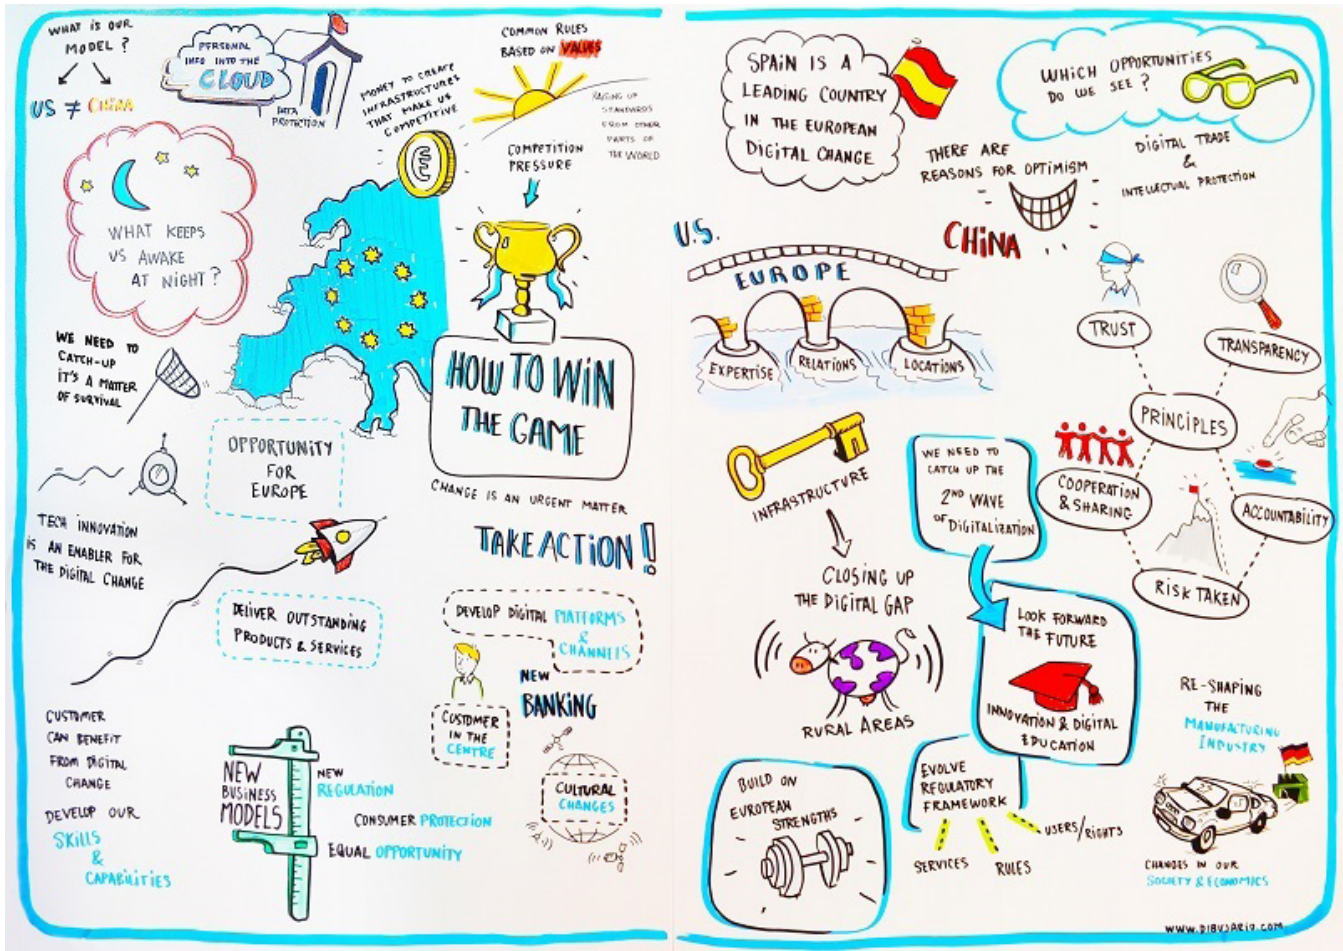 WHAT IS OUR
MODEL?
US ≠ CHINA
PERSONAL
INFO INTO THE
CLOUD
DATA
PROTECTION
MONEY TO CREATE
INFRASTRUCTURES
THAT MAKE US
COMPETITIVE
COMMON RULES
BASED ON VALUES
RAISING UP
STANDARDS
FROM OTHER
PARTS OF
THE WORLD
COMPETITION
PRESSURE
WHAT KEEPS
US AWAKE
AT NIGHT?
WE NEED TO
CATCH-UP
IT'S A MATTER
OF SURVIVAL
HOW TO WIN
THE GAME
OPPORTUNITY
FOR
EUROPE
CHANGE IS AN URGENT MATTER
TAKE ACTION!
TECH INNOVATION
IS AN ENABLER FOR
THE DIGITAL CHANGE
DELIVER OUTSTANDING
PRODUCTS & SERVICES
DEVELOP DIGITAL PLATFORMS
&
CHANNELS
NEW
BANKING
CUSTOMER
IN THE
CENTRE
CULTURAL
CHANGES
CUSTOMER
CAN BENEFIT
FROM DIGITAL
CHANGE
DEVELOP OUR
SKILLS
&
CAPABILITIES
NEW
BUSINESS
MODELS
NEW
REGULATION
CONSUMER PROTECTION
EQUAL OPPORTUNITY
SPAIN IS A
LEADING COUNTRY
IN THE EUROPEAN
DIGITAL CHANGE
WHICH OPPORTUNITIES
DO WE SEE?
DIGITAL TRADE
&
INTELLECTUAL PROTECTION
THERE ARE
REASONS FOR OPTIMISM
U.S.
CHINA
EUROPE
EXPERTISE
RELATIONS
LOCATIONS
TRUST
TRANSPARENCY
PRINCIPLES
COOPERATION
& SHARING
ACCOUNTABILITY
RISK TAKEN
INFRASTRUCTURE
CLOSING UP
THE DIGITAL GAP
RURAL AREAS
WE NEED TO
CATCH UP THE
2ND WAVE
OF DIGITALIZATION
LOOK FORWARD
THE FUTURE
INNOVATION & DIGITAL
EDUCATION
EVOLVE
REGULATORY
FRAMEWORK
SERVICES
RULES
USERS/RIGHTS
BUILD ON
EUROPEAN
STRENGTHS
RE-SHAPING
THE
MANUFACTURING
INDUSTRY
CHANGES IN OUR
SOCIETY & ECONOMICS
WWW.DIBUSARIO.COM